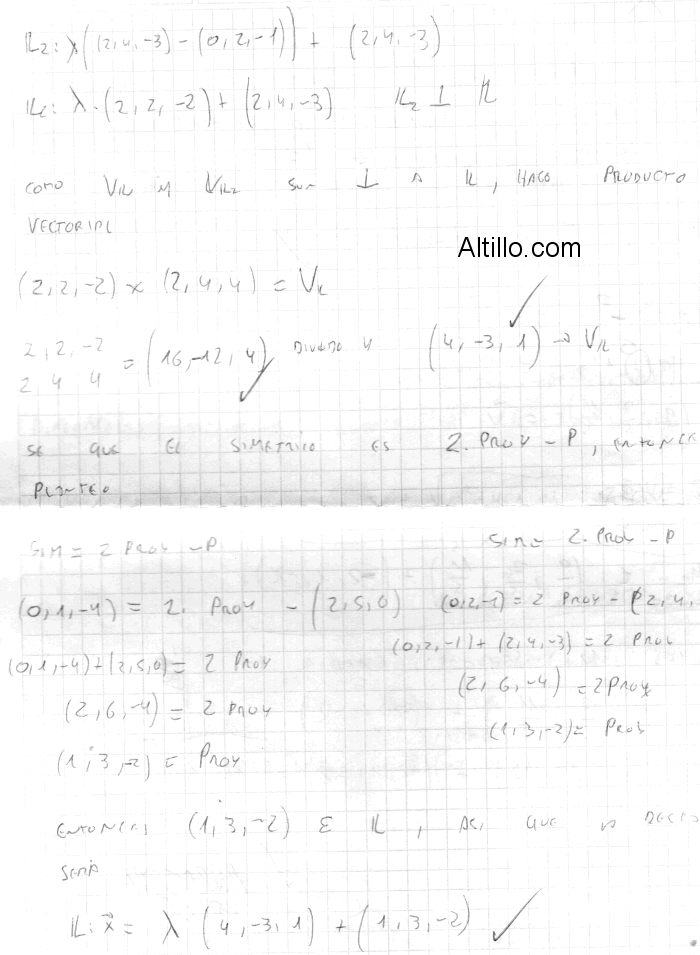 L2: λ((2,4,-3) - (0,2,-1)) + (2,4,-3)
L2: λ.(2,2,-2) + (2,4,-3) L2 ⊥ L
COMO VL1 y VL2 SON ⊥ A L, HAGO PRODUCTO
VECTORIAL
Altillo.com
(2,2,-2) x (2,4,4) = VL
2, 2, -2
2, 4 4
= (16,-12,4) DIVIDO 4 (4,-3,1) → VL
SE QUE EL SIMETRICO ES 2.PROY - P, ENTONCES
PLANTEO
SIM = 2 PROY - P
SIM = 2. PROY - P
(0,1,-4) = 2. PROY - (2,5,0)
(0,2,-1) = 2 PROY - (2,4,
(0,1,-4)+(2,5,0) = 2 PROY
(0,2,-1)+(2,4,-3) = 2 PROY
(2,6,-4) = 2 PROY
(2,6,-4) = 2PROY
(1,3,-2) = PROY
(1,3,-2) = PROY
ENTONCES (1,3,-2) ε L, ASI QUE
SERIA
L: x⃗ = λ (4,-3,1) + (1,3,-2)